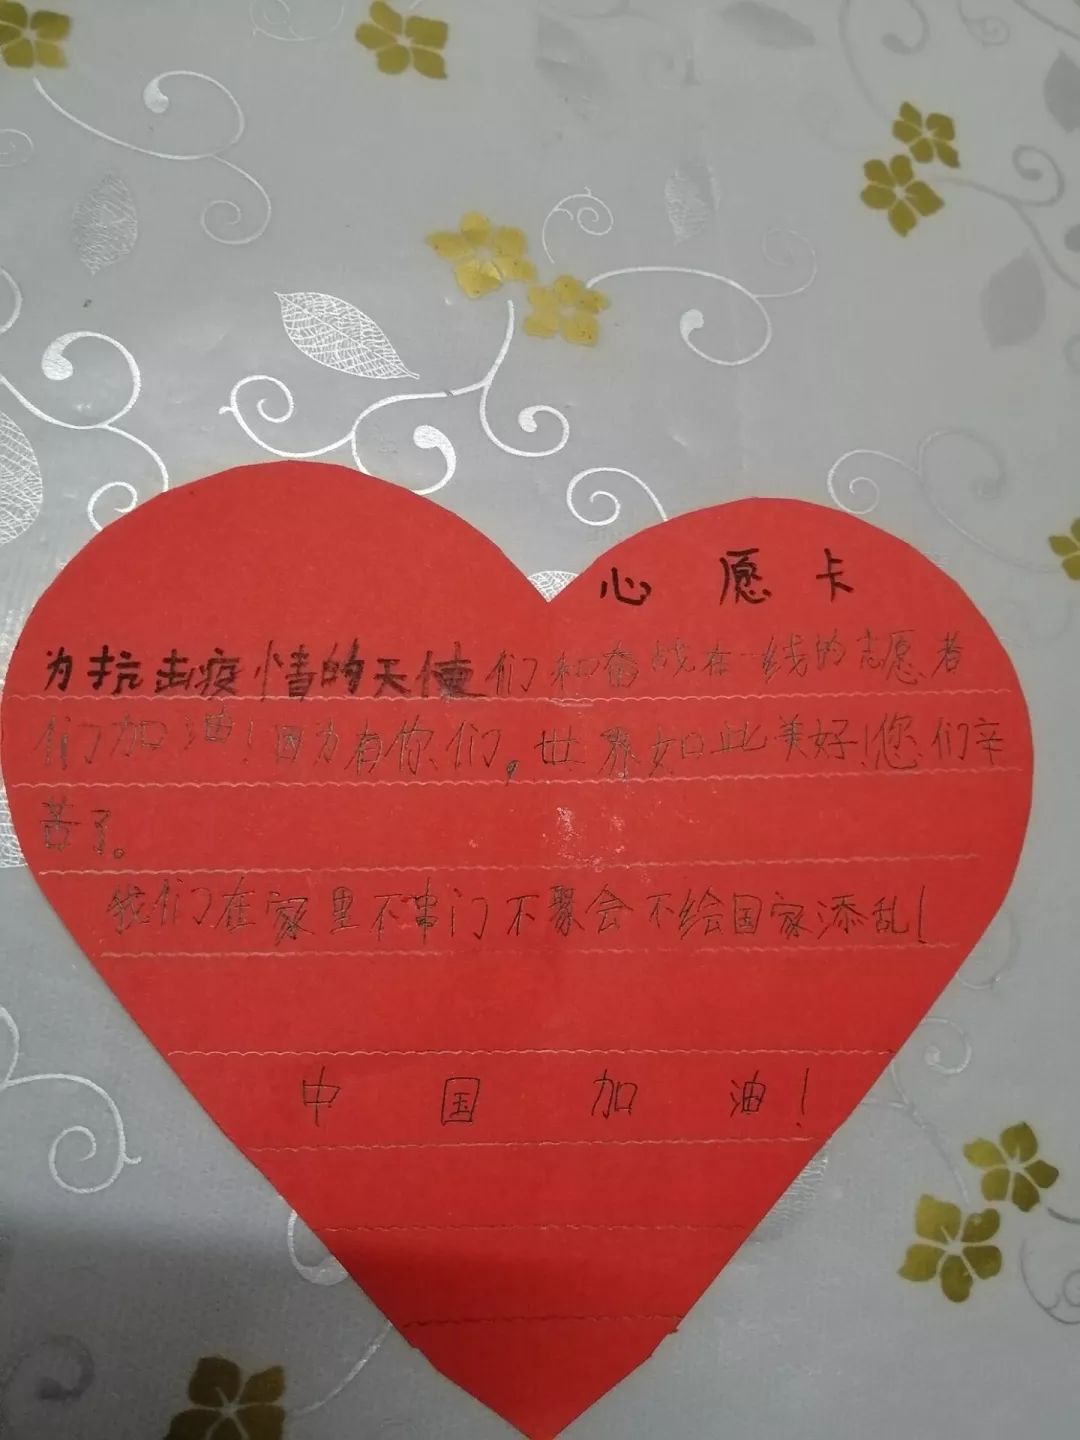 心愿卡
为抗击疫情的天使们和奋战在一线的志愿者
们加油！因为有你们，世界如此美好！您们辛
苦了。
我们在家里不串门不聚会不给国家添乱！
中国加油！